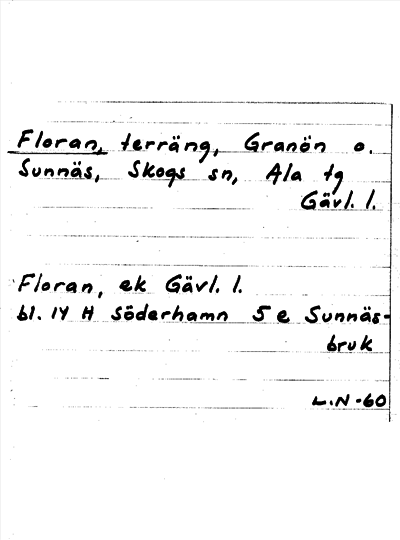 Floran, terräng, Granön o.
Sunnäs, Skogs sn, Ala tg
Gävl. l.
Floran, ek Gävl. l.
bl. 14 H Söderhamn 5 e Sunnäs-
bruk
L.N-60